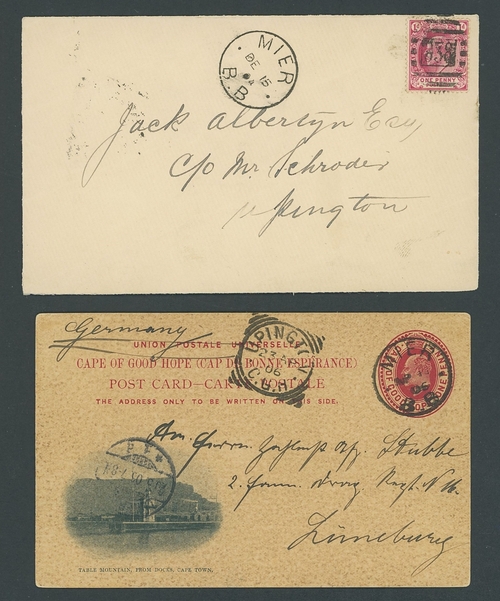 MIER
DE 15
04
B.B
ONE PENNY
Jack Albertyn Esq,
c/o Mr Schroder
Upington
Germany
UNION POSTALE UNIVERSELLE
CAPE OF GOOD HOPE (CAP DE BONNE ESPERANCE)
POST CARD—CARTE POSTALE
THE ADDRESS ONLY TO BE WRITTEN ON THIS SIDE.
UPINGTON
06
C.G.H.
MIER
06
B.B
An Herrn
Stubbe
2.
Lüneburg
TABLE MOUNTAIN, FROM DOCKS, CAPE TOWN.